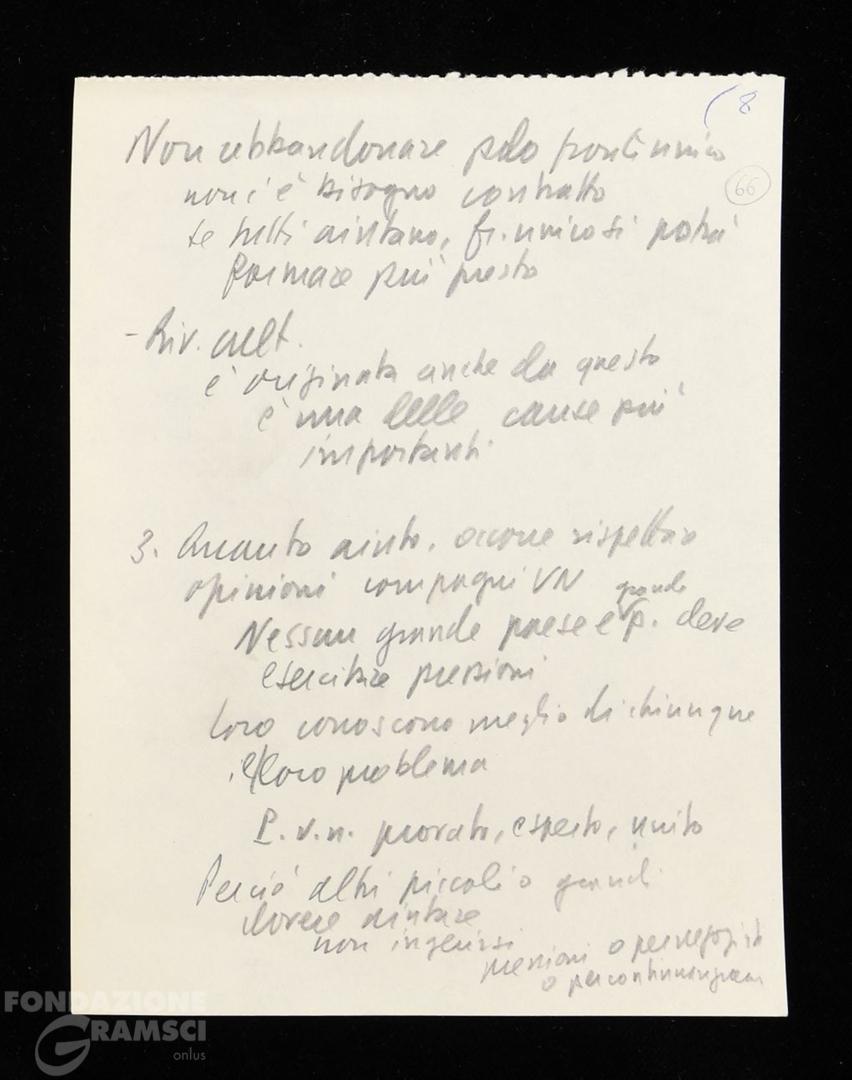 (8
66
Non abbandonare fronte unico
non c'è bisogno contratto
se tutti aiutano, fr. unico si potrà
formare più presto
- Riv. cult.
è originata anche da questo
è una delle cause più
importanti
3. Quanto aiuto, occorre rispettare
opinioni compagni VN
grande
Nessun grande paese e p. deve
esercitare pressioni
Loro conoscono meglio di chiunque
il loro problema
P. v. n. provato, esperto, unito
Perciò altri piccoli o grandi
dovere aiutare
non ingerirsi
pressioni o per negoziati
o per continuare guerra
FONDAZIONE
GRAMSCI
onlus